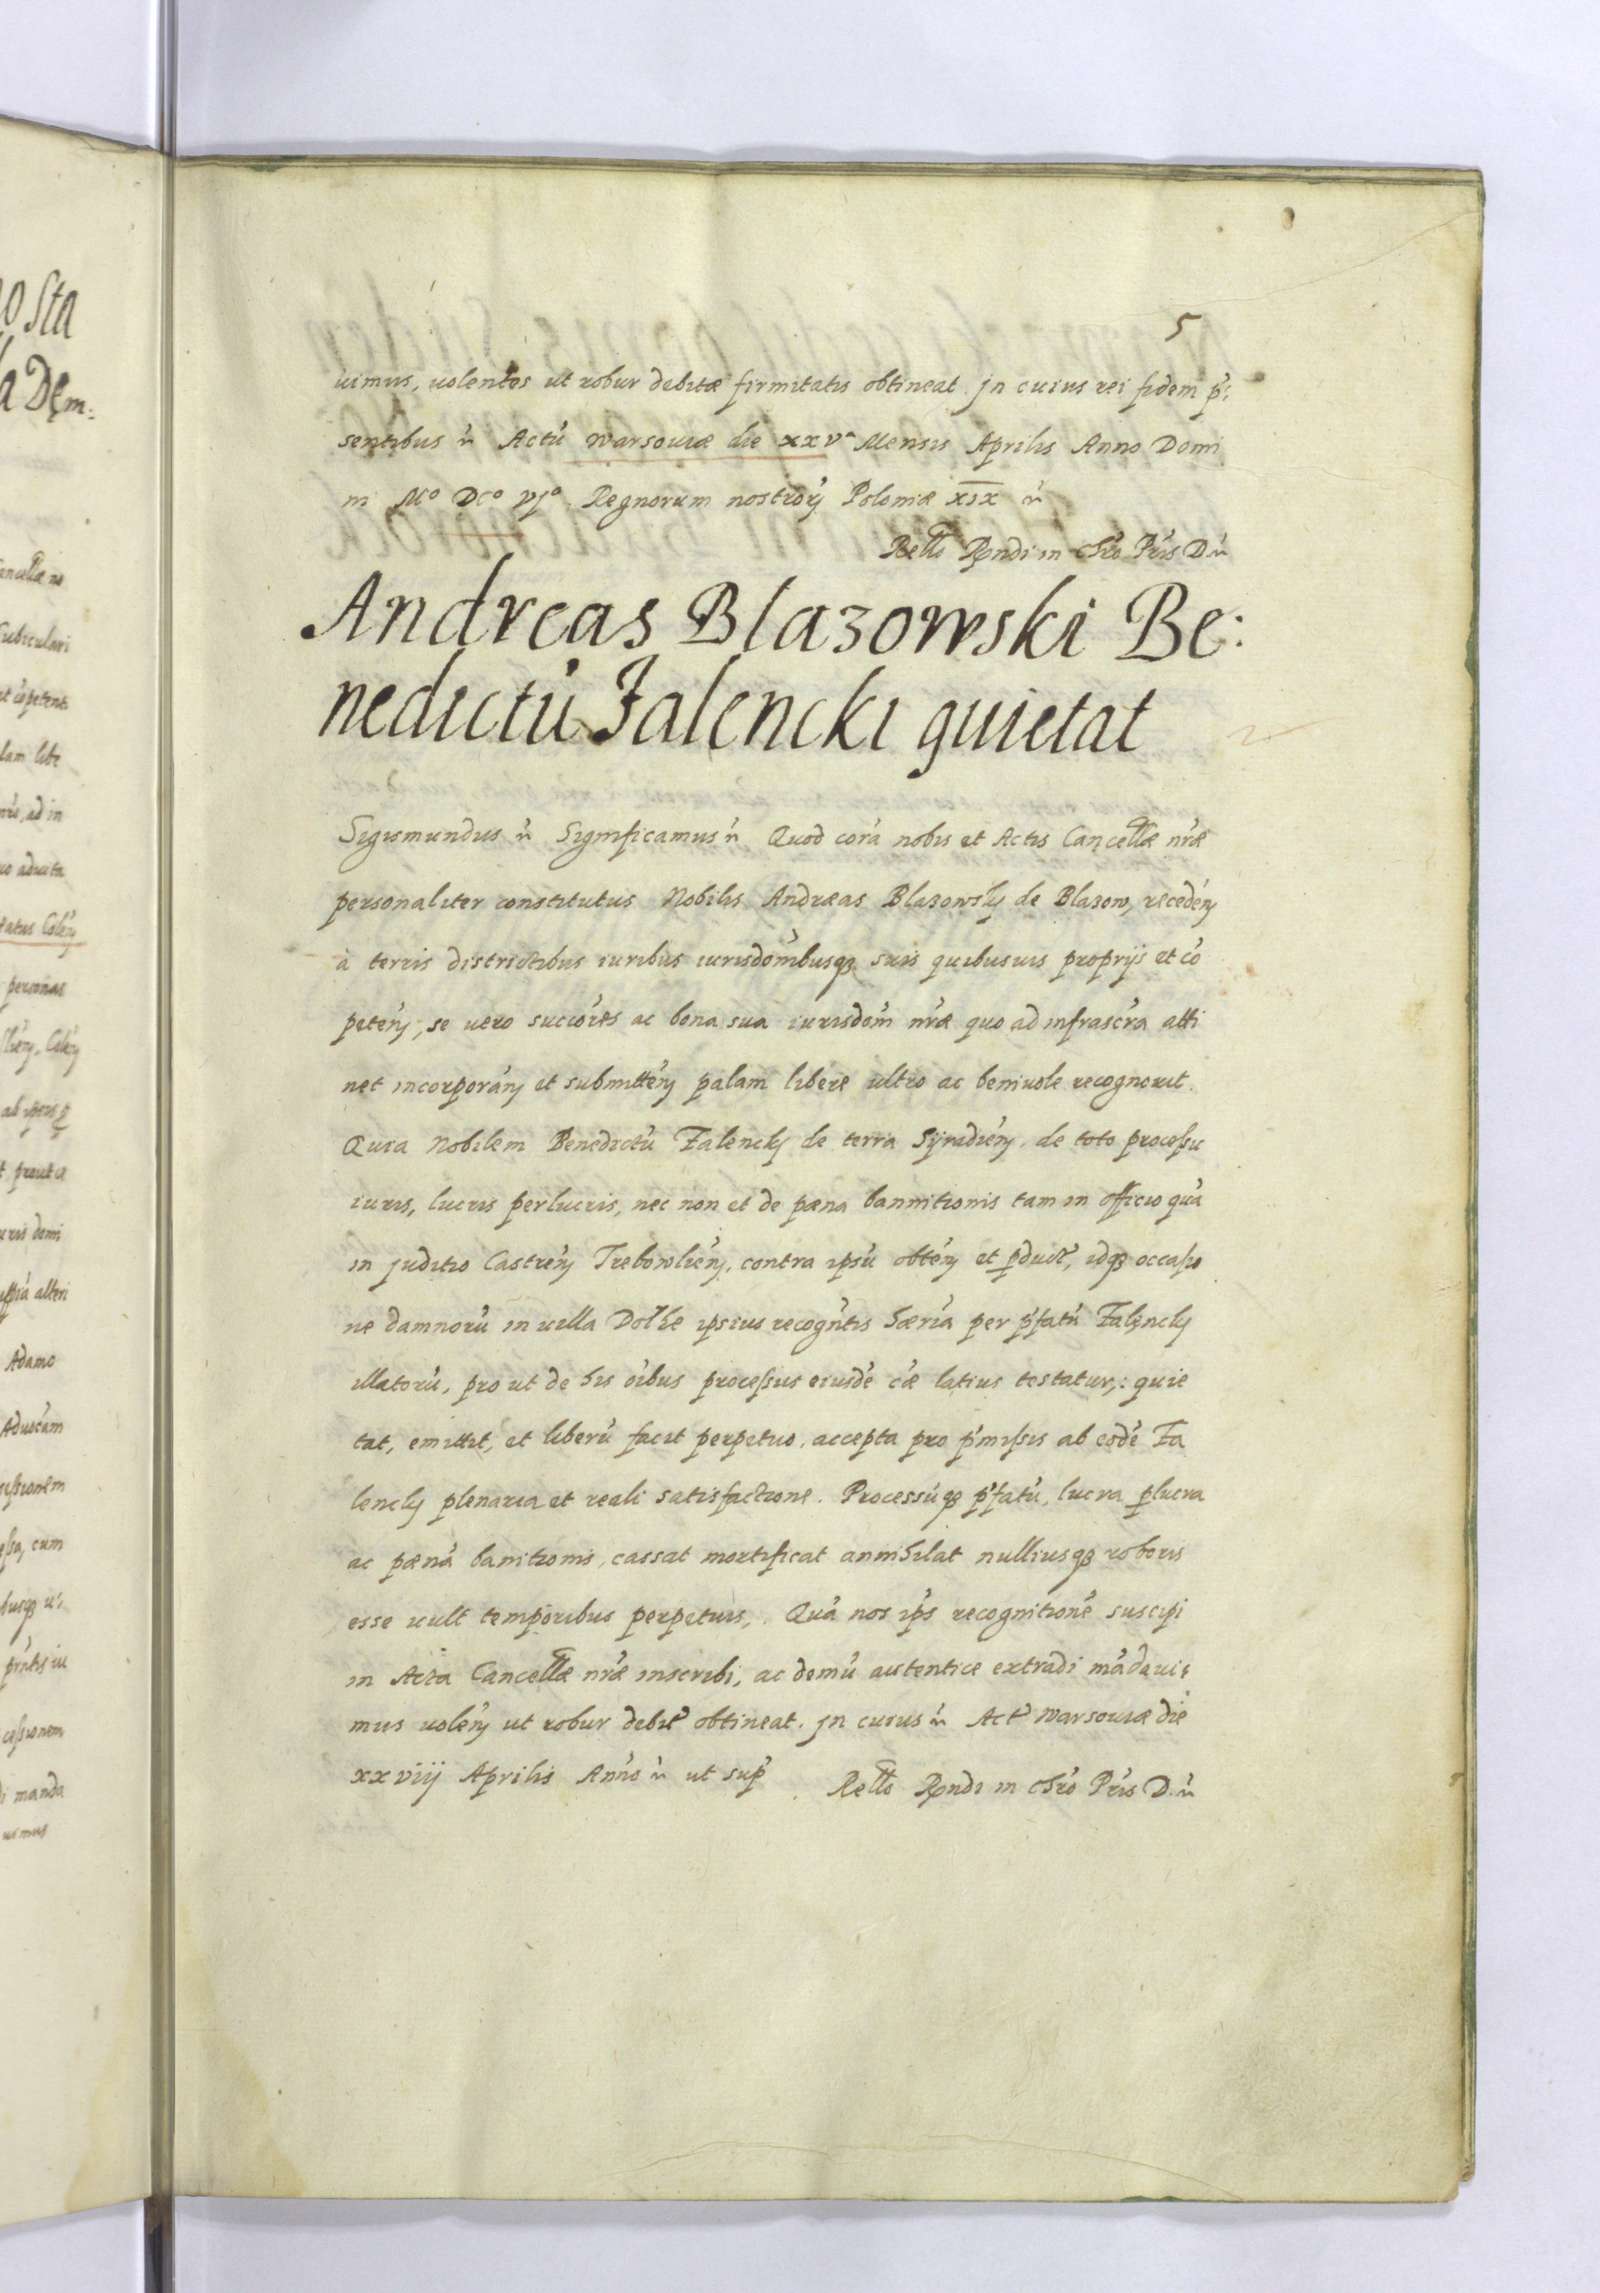 5
uimus, uolentes ut robur debitæ firmitatis obtineat. Jn cuius rei fidem p̃:
sentibus ẽ Actũ Warsouiæ die xxvᵃ Mensis Aprilis Anno Domi
ni Mº DCº VJº. Regnorum nostrorꝫ Poloniæ XIX ẽ
Rello Rndi in Chro Pris D ẽ
Andreas Blazowski Be:
nedictũ Falencki quietat
Sigismundus ẽ Significamus ẽ Quod corã nobis et Actis Cancellæ nr̃æ
personaliter constitutus Nobilis Andræas Blazowsky de Blazow, recedeñ
à terris districtibus iuribus iurisdom̃ibusqꝫ suis quibusuis proprijs et cõ
peteñ, se uero succores ac bona sua iurisdom̃ nr̃æ quo ad infrascr̃a atti
net incorporañ et submitteñ palam libere ultro ac beniuole recognouit.
Quia Nobilem Benedictũ Falencky de terra Syradieñ, de toto processu
iuris, lucris perlucris, nec non et de pæna bannitionis tam in officio quã
in juditio Castreñ Trebowlieñ, contra ipsũ obteñ et ꝑduct, idqꝫ occasio
ne damnorũ in uilla Dolhe ipsius recogñtis hæria per p̃fatũ Falency
illatorũ, pro ut de his oĩbus processus eiusdẽ cæ latius testatur,: quie
tat, emittit, et liberũ facit perpetuo, accepta pro p̃missis ab eodẽ Fa
lency plenaria et reali satisfactione. Processũqꝫ p̃fatũ, lucra ꝑlucra
ac pænã banitionis, cassat mortificat annihilat nulliusqꝫ roboris
esse uult temporibus perpetuis,. Quã nos ip̃s recognitionẽ suscipi
in Acta Cancellæ nr̃æ inscribi, ac demũ autentice extradi mãdaui:
mus uoleñ ut robur debit obtineat. Jn cuius ẽ Act Warsouiæ die
xxviij Aprilis Anno ẽ ut sup̃
Rello Rndi in Chro Pris D. ẽ